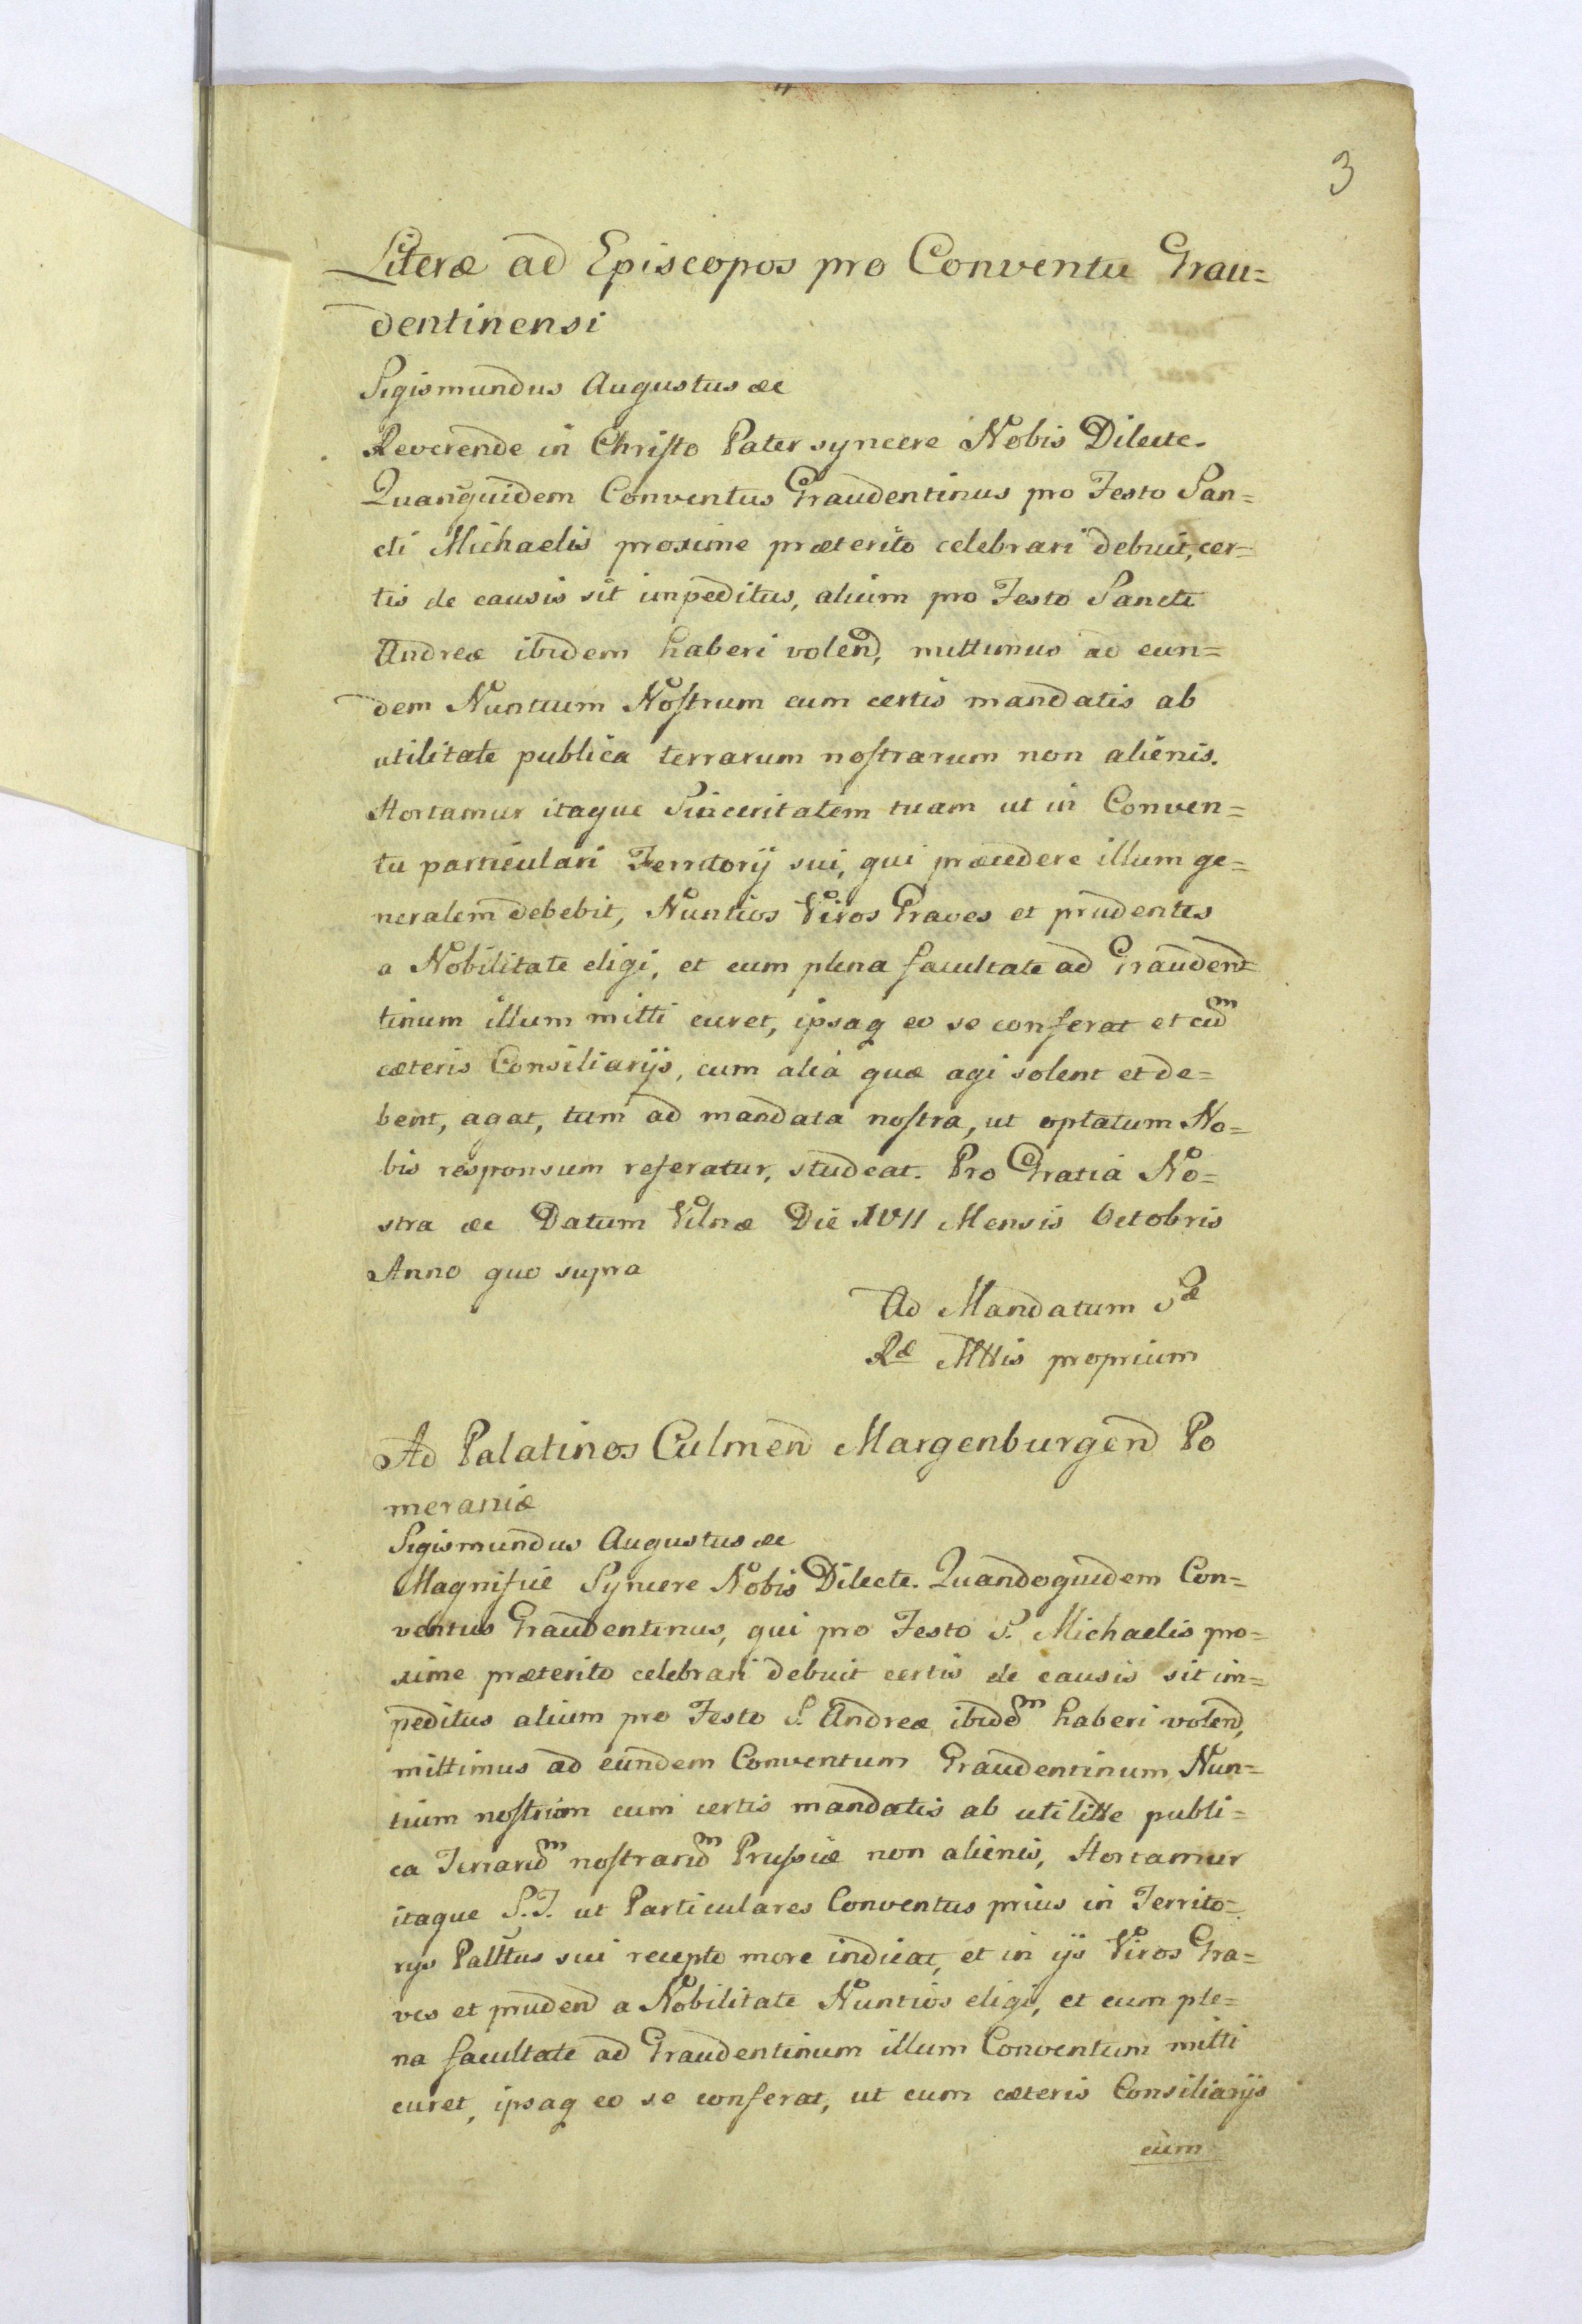 3
Literæ ad Episcopos pro Conventu Grau=
dentinensi
Sigismundus Augustus &c
Reverende in Christo Pater syncere Nobis Dilecte.
Quanquidem Conventus Graudentinus pro Festo San=
cti Michaelis proxime præterito celebrari debuit, cer=
tis de causis sit impeditus, alium pro Festo Sancti
Andreæ ibidem haberi volend, mittimus ad eun=
dem Nuntium Nostrum cum certis mandatis ab
utilitate publica terrarum nostrarum non alienis.
Hortamur itaque Sinceritatem tuam ut in Conven=
tu particulari Territorij sui, qui præcedere illum ge=
neralem debebit, Nuntios Viros Graves et prudentes
a Nobilitate eligi, et cum plena facultate ad Graudend=
tinum illum mitti curet, ipsaq eo se conferat et cum
cæteris Consiliarijs, cum alia quæ agi solent et de=
bent, agat, tum ad mandata nostra, ut optatum No=
bis responsum referatur, studeat. Pro Gratia No=
stra &c Datum Vilnæ Die XVII Mensis Octobris
Anno quo supra
Ad Mandatum Sæ
Ræ Mttis proprium
Ad Palatinos Culmend Margenburgend Po
meraniæ
Sigismundus Augustus &c
Magnifice Syncere Nobis Dilecte. Quandoquidem Con=
ventus Graudentinus, qui pro Festo S. Michaelis pro=
xime præterito celebrari debuit certis de causis sit im=
peditus alium pro Festo S. Andreæ ibidem haberi volend,
mittimus ad eundem Conventum Graudentinum Nun=
tium nostrum cum certis mandatis ab utilitte publi=
ca Terrarum nostrarum Prussiæ non alienis, Hortamur
itaque S.T. ut Particulares Conventus prius in Territo=
rijs Palttus sui recepto more indicat, et in ijs Viros Gra=
ves et prudend a Nobilitate Nuntios eligi, et cum ple=
na facultate ad Graudentinum illum Conventum mitti
curet, ipsaq eo se conferat, ut cum cæteris Consiliarijs
cum